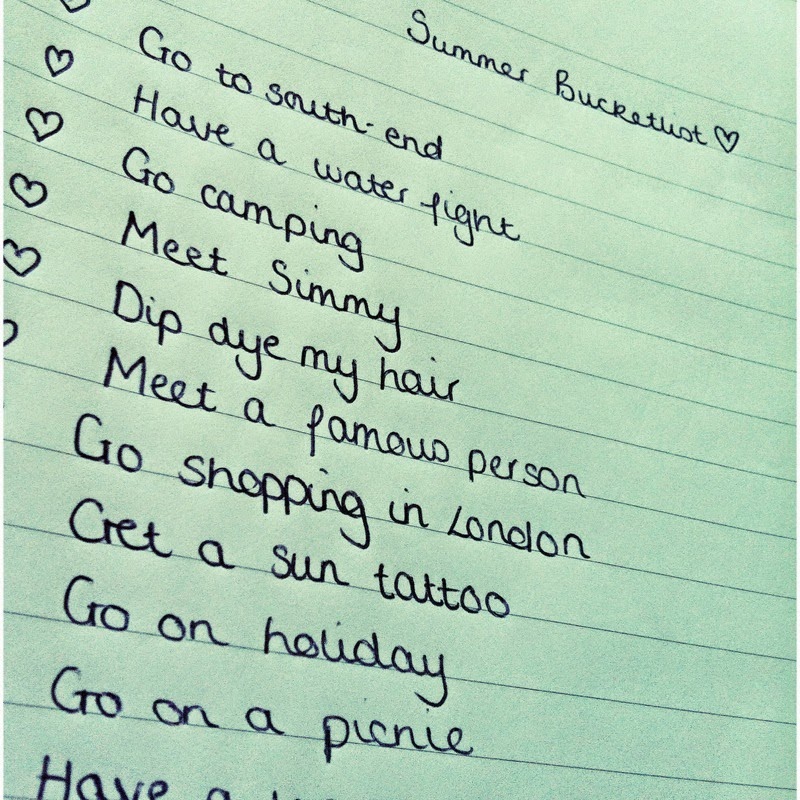 Summer Bucketlist ♡
♡ Go to south-end
♡ Have a water fight
♡ Go camping
♡ Meet Simmy
♡ Dip dye my hair
♡ Meet a famous person
Go shopping in London
Get a sun tattoo
Go on holiday
Go on a picnic
Have a